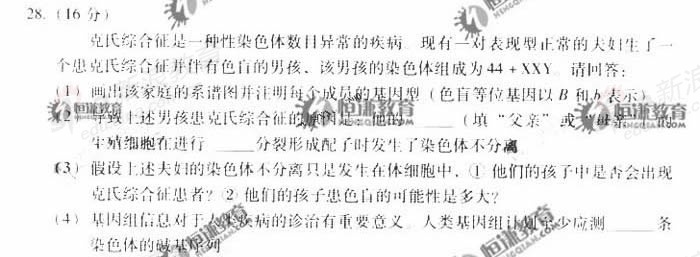 28.（16 分）
克氏综合征是一种性染色体数目异常的疾病。现有一对表现型正常的夫妇生了一
个患克氏综合征并伴有色盲的男孩，该男孩的染色体组成为44 + XXY。请回答：
(1) 画出该家庭的系谱图并注明每个成员的基因型（色盲等位基因以 B 和 b 表示）
(2) 导致上述男孩患克氏综合征的原因是：他的 ______（填“父亲”或“母亲”）的
生殖细胞在进行 ____ 分裂形成配子时发生了染色体不分离
(3) 假设上述夫妇的染色体不分离只是发生在体细胞中，① 他们的孩子中是否会出现
克氏综合征患者？② 他们的孩子患色盲的可能性是多大？
(4) 基因组信息对于人类疾病的诊治有重要意义。人类基因组计划至少应测 ______ 条
染色体的碱基序列
恒谦教育
HENGQIAN.COM